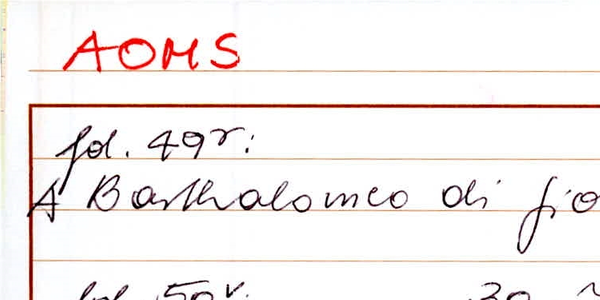 AOMS
fol. 49r:
A Bartholomeo di gio
fol. 50v. 30